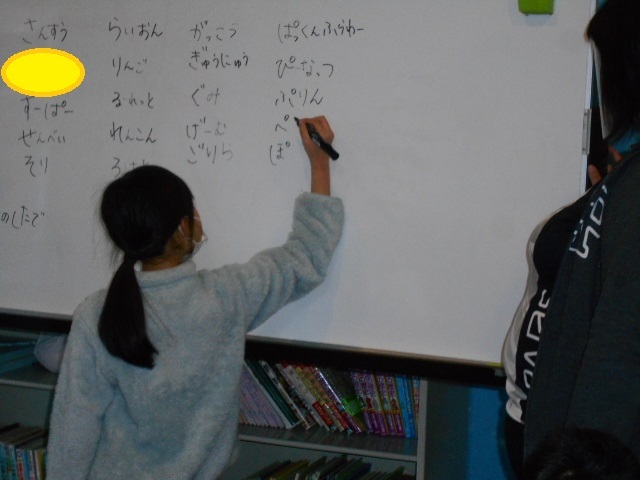 さんすう らいおん がっこう ぱっくんふらわー
りんご ぎゅうにゅう ぴーなっつ
すーぱー るれっと ぐみ ぷりん
せんべい れんこん げーむ ぺ
そり ごりら ぽ
のしたで